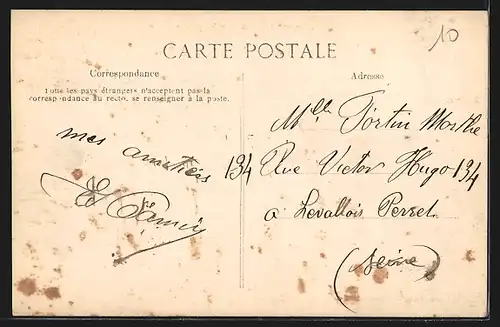 10
CARTE POSTALE
Correspondance
Tous les pays étrangers n'acceptent pas la
correspondance au recto, se renseigner à la poste.
mes amitiés
Adresse
Melle Fortin Marthe
134 Rue Victor Hugo 134
a Levallois Perret
(Seine)